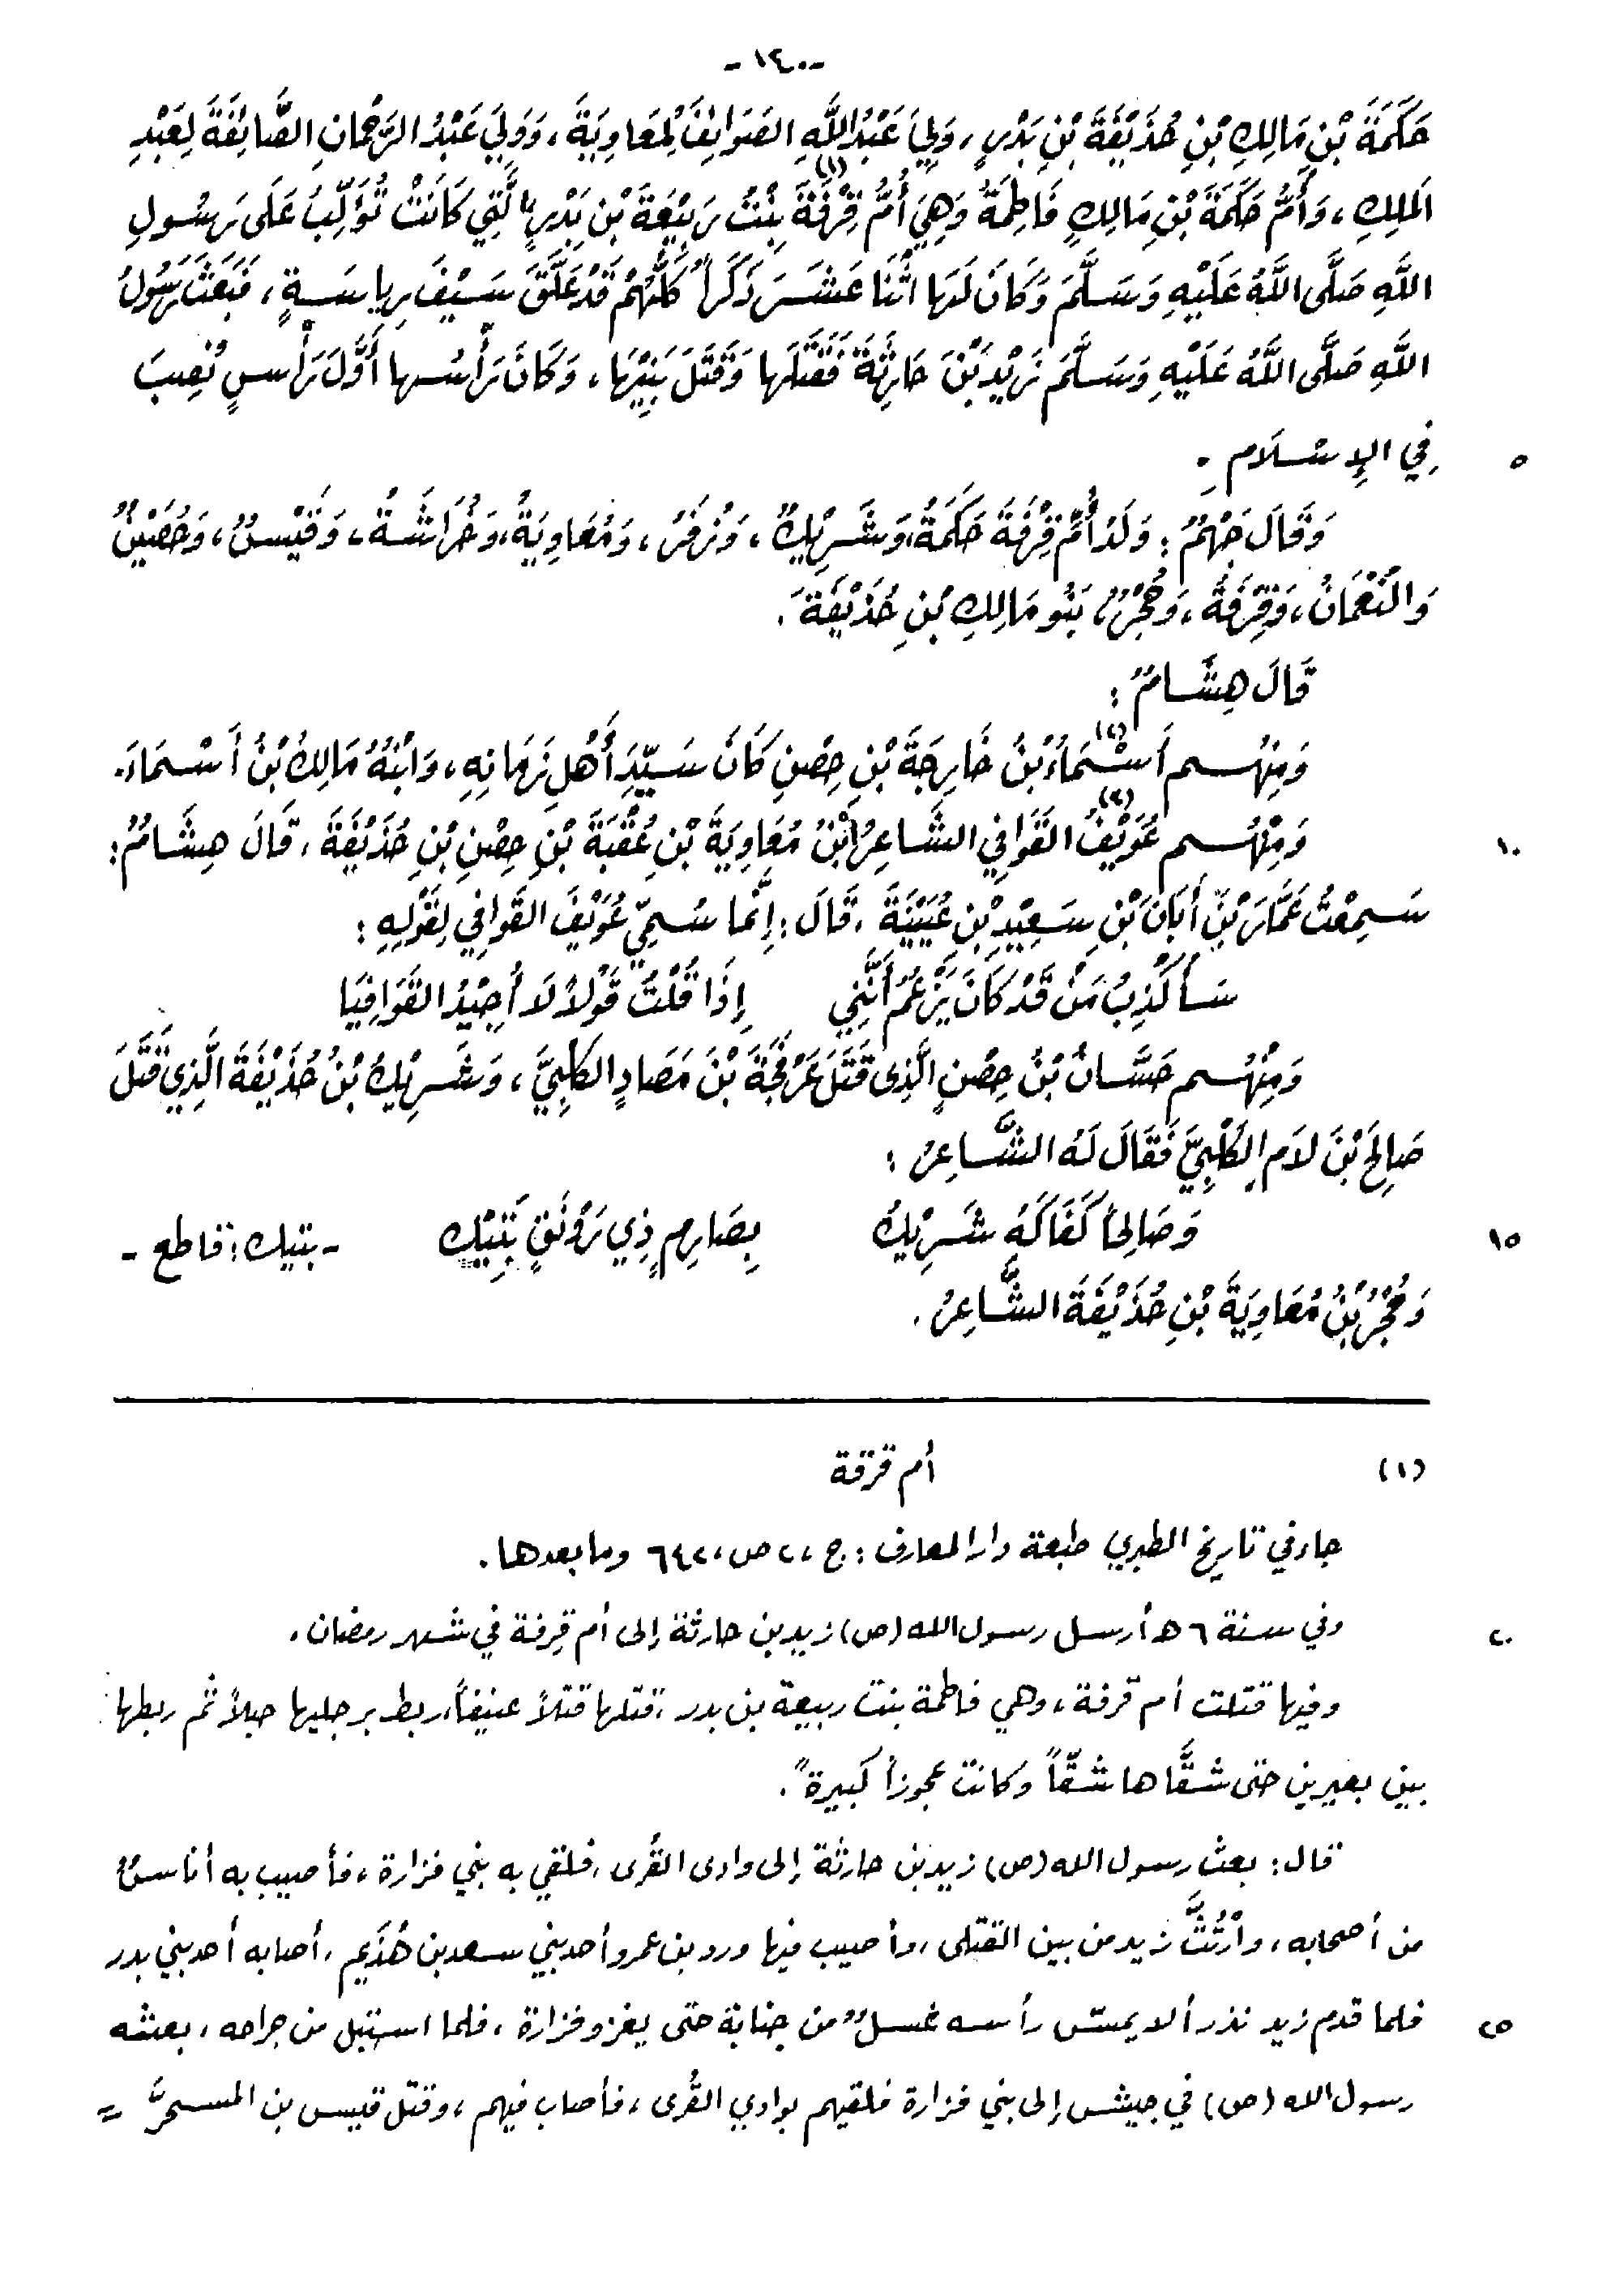 -١٤٠-
حَكَمَةَ بْنِ مَالِكِ بْنِ حُذَيْفَةَ بْنِ بَدْرٍ، وَلِيَ عَبْدُ اللَّهِ الصَوَائِفَ لِمُعَاوِيَةَ، وَوَلِيَ عَبْدُ الرَّحْمَانِ الصَّائِفَةَ لِعَبْدِ
المَلِكِ، وَأُمُّ حَكَمَةَ بْنِ مَالِكٍ فَاطِمَةُ وَهِيَ أُمُّ قِرْفَةَ (١) بِنْتُ رَبِيْعَةَ بْنِ بَدْرٍ، الَّتِي كَانَتْ تُؤَلِّبُ عَلَى رَسُولِ
اللَّهِ صَلَّى اللَّهُ عَلَيْهِ وَسَلَّمَ وَكَانَ لَهَا اثْنَا عَشَرَ ذَكَراً كُلُّهُمْ قَدْ عَلَّقَ سَيْفَ رِياسَةٍ، فَبَعَثَ رَسُولُ
اللَّهِ صَلَّى اللَّهُ عَلَيْهِ وَسَلَّمَ زَيْدَ بْنَ حَارِثَةَ فَقَتَلَهَا وَقَتَلَ بَنِيْهَا، وَكَانَ رَأْسُهَا أَوَّلَ رَأْسٍ نُصِبَ
فِي الإِسْلَامِ.
٥
وَقَالَ جَهْمٌ: وَلَدُ أُمِّ قِرْفَةَ حَكَمَةُ، وَشَرِيْكٌ، وَزُفَرُ، وَمُعَاوِيَةُ، وَخُرَاشَةُ، وَقَيْسٌ، وَحُصَيْنٌ
وَالنُّعْمَانُ، وَقِرْفَةُ، وَحُجْرٌ، بَنُو مَالِكِ بْنِ حُذَيْفَةَ.
قَالَ هِشَامٌ:
وَمِنْهُم أَسْمَاءُ (٢) بْنُ خَارِجَةَ بْنِ حِصْنٍ كَانَ سَيِّدَ أَهْلِ زَمَانِهِ، وَابْنُهُ مَالِكُ بْنُ أَسْمَاءَ.
وَمِنْهُم عُوَيْفُ (٣) القَوَافِي الشَاعِرُ ابْنُ مُعَاوِيَةَ بْنِ عُقْبَةَ بْنِ حِصْنِ بْنِ حُذَيْفَةَ، قَالَ هِشَامٌ:
١٠
سَمِعْتُ عَمَّارَ بْنَ أَبَانَ بْنِ سَعِيْدِ بْنِ عُيَيْنَةَ، قَالَ: إِنَّمَا سُمِّيَ عُوَيْفَ القَوَافِي لِقَوْلِهِ:
سَأُكْذِبُ مَنْ قَدْ كَانَ يَزْعُمُ أَنَّنِي    إِذَا قُلْتُ قَوْلاً لَا أُجِيْدُ القَوَافِيَا
وَمِنْهُم حَسَّانُ بْنُ حِصْنٍ الَّذِي قَتَلَ عَرْفَجَةَ بْنَ مَصَادٍ الكَلْبِيَّ، وَشَرِيْكُ بْنُ حُذَيْفَةَ الَّذِي قَتَلَ
صَالِحَ بْنَ لَامٍ الكَلْبِيَّ فَقَالَ لَهُ الشَّاعِرُ:
وَصَالِحاً كَفَاكَهُ شَرِيْكُ    بِصَارِمٍ ذِي رَوْنَقٍ بَتِيْكِ    - بتيك: قاطع -
١٥
وَحُجْرُ بْنُ مُعَاوِيَةَ بْنِ حُذَيْفَةَ الشَّاعِرُ.
(١)    أم قرقة
جاء في تاريخ الطبري طبعة دار المعارف: ج، ٢ ص، ٦٤٢ وما بعدها.
وفي سنة ٦ ه أرسل رسول الله (ص) زيد بن حارثة إلى أم قِرفة في شهر رمضان.
٢٠
وفيها قتلت أم قرفة، وهي فاطمة بنت ربيعة بن بدر، قتلها قتلاً عنيفاً، ربط برجليها حبلاً ثم ربطها
بين بعيرين حتى شقَّاها شقّاً وكانت عجوزاً كبيرةً.
قال: بعث رسول الله (ص) زيد بن حارثة إلى وادى القُرى، فلقي به بني فزارة، فأصيب به أناسٌ
من أصحابه، وارْتُثَّ زيد من بين القتلى، وأصيب فيها ورد بن عمرو أحد بني سعد بن هُذَيم، أصابه أحد بني بدر
فلما قدم زيد نذر ألا يمسّ رأسه غسلٌ من جنابة حتى يغزو فزارة، فلما استبل من جراحه، بعثه
٢٥
رسول الله (ص) في جيش إلى بني فزارة فلقيهم بوادي القُرى، فأصاب فيهم، وقتل قيس بن المسحرَّ =